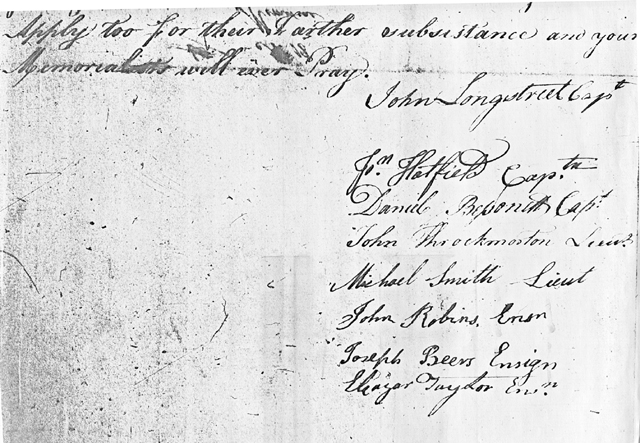 Apply too for their Farther subsistance and your
Memorialists will ever Pray.
John Longstreet Capt
Jn. Hatfield Capn
Daniel Bessonett Capt
John Throckmorton Lieut.
Michael Smith Lieut
John Robins. Ensn
Joseph Beers Ensign
Eleazar Taylor Ensn.